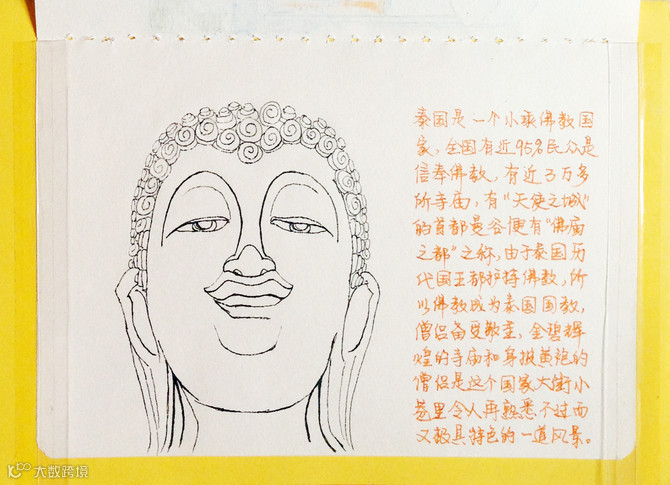 泰国是一个小乘佛教国
家，全国有近95%民众是
信奉佛教，有近3万多
所寺庙，有"天使之城"
的首都曼谷便有"佛庙
之都"之称，由于泰国历
代国王都护持佛教，所
以佛教成为泰国国教，
僧侣备受敬重，金碧辉
煌的寺庙和身披黄袍的
僧侣是这个国家大街小
巷里令人再熟悉不过而
又极具特色的一道风景。
大数跨境